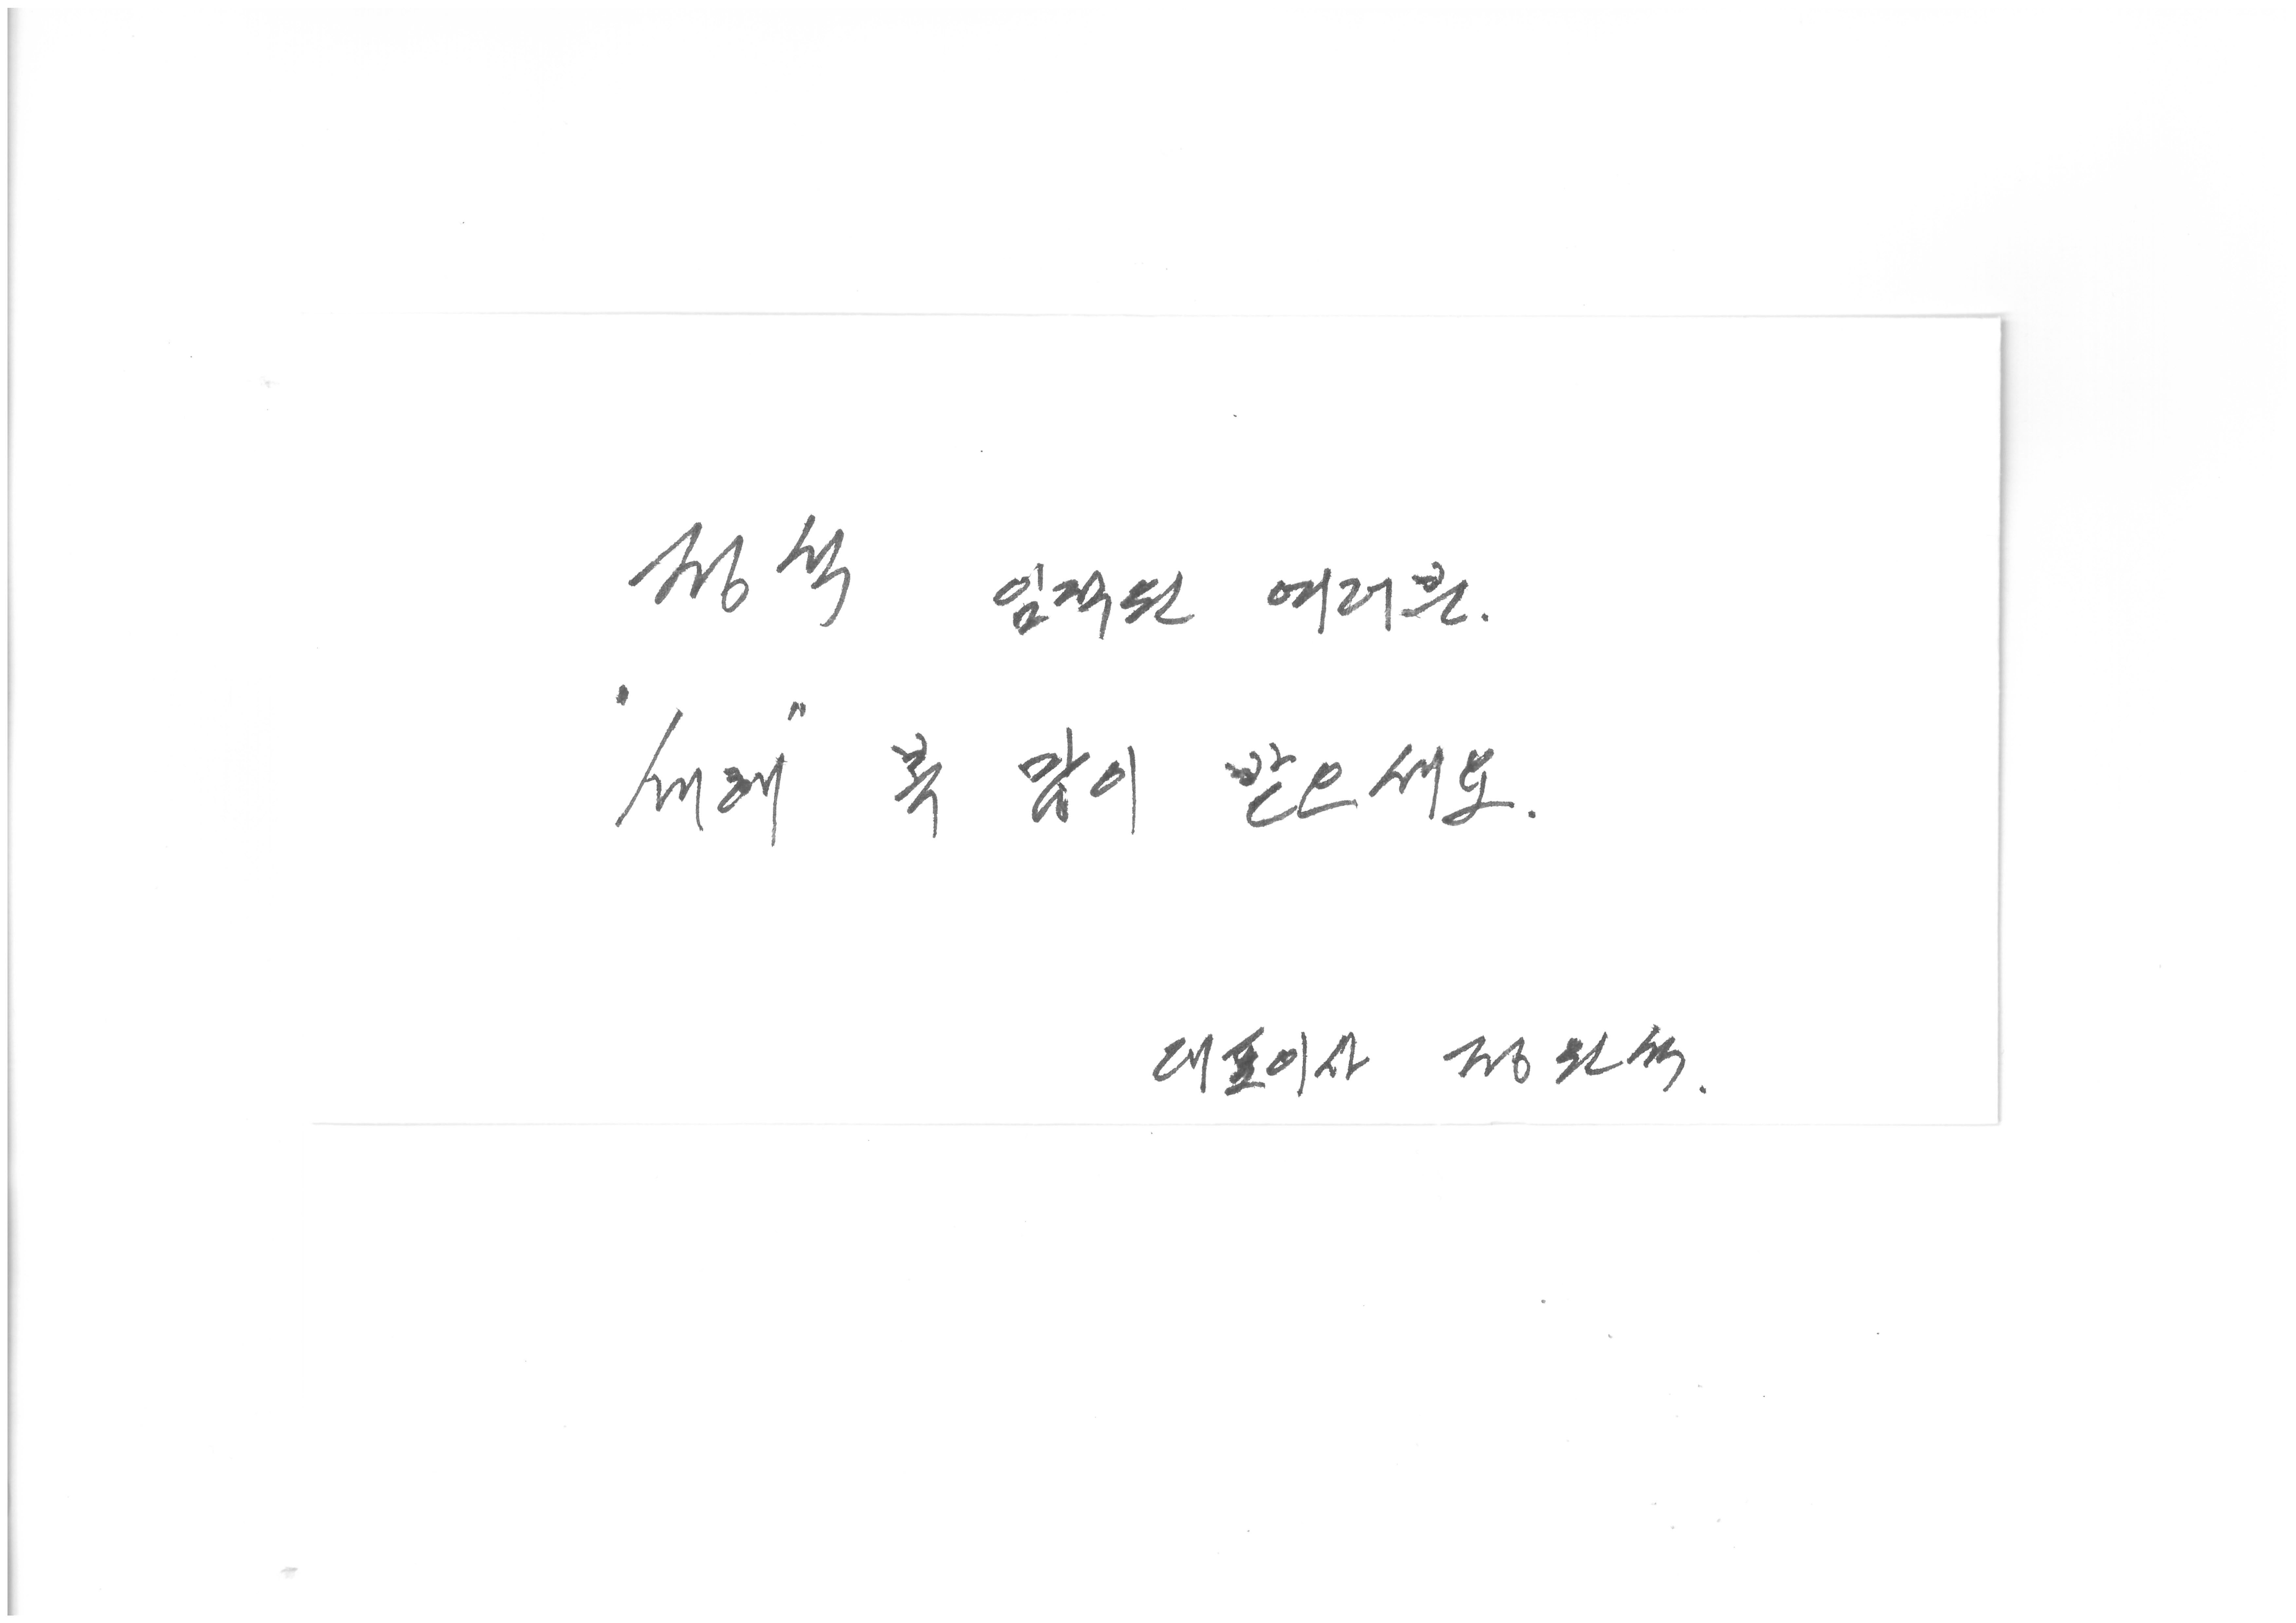 정석 임직원 여러분.
"새해" 복 많이 받으세요.
대표이사 정원석.